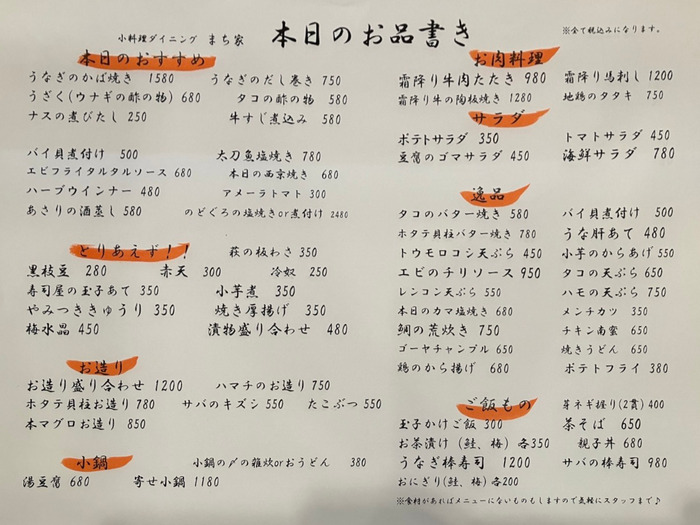 小料理ダイニング まち家
本日のお品書き
※全て税込みになります。
本日のおすすめ
うなぎのかば焼き 1580 うなぎのだし巻き 750
うざく(ウナギの酢の物) 680 タコの酢の物 580
ナスの煮びたし 250 牛すじ煮込み 580
バイ貝煮付け 500 太刀魚塩焼き 780
エビフライタルタルソース 680 本日の西京焼き 680
ハーブウインナー 480 アメーラトマト 300
あさりの酒蒸し 580 のどぐろの塩焼きor煮付け 2480
とりあえず!! 萩の板わさ 350
黒枝豆 280 赤天 300 冷奴 250
寿司屋の玉子あて 350 小芋煮 350
やみつききゅうり 350 焼き厚揚げ 350
梅水晶 450 漬物盛り合わせ 480
お造り
お造り盛り合わせ 1200 ハマチのお造り 750
ホタテ貝柱お造り 780 サバのキズシ 550 たこぶつ 550
本マグロお造り 850
小鍋 小鍋の〆の雑炊orおうどん 380
湯豆腐 680 寄せ小鍋 1180
お肉料理
霜降り牛肉たたき 980 霜降り馬刺し 1200
霜降り牛の陶板焼き 1280 地鶏のタタキ 750
サラダ
ポテトサラダ 350 トマトサラダ 450
豆腐のゴマサラダ 450 海鮮サラダ 780
逸品
タコのバター焼き 580 バイ貝煮付け 500
ホタテ貝柱バター焼き 780 うな肝あて 480
トウモロコシ天ぷら 450 小芋のからあげ 550
エビのチリソース 950 タコの天ぷら 650
レンコン天ぷら 550 ハモの天ぷら 750
本日のカマ塩焼き 680 メンチカツ 350
鯛の荒炊き 750 チキン南蛮 650
ゴーヤチャンプル 650 焼きうどん 650
鶏のから揚げ 680 ポテトフライ 380
ご飯もの 芽ネギ握り(2貫) 400
玉子かけご飯 300 茶そば 650
お茶漬け (鮭、梅) 各350 親子丼 680
うなぎ棒寿司 1200 サバの棒寿司 980
おにぎり(鮭、梅) 各200
※食材があればメニューにないものもしますので気軽にスタッフまで♪